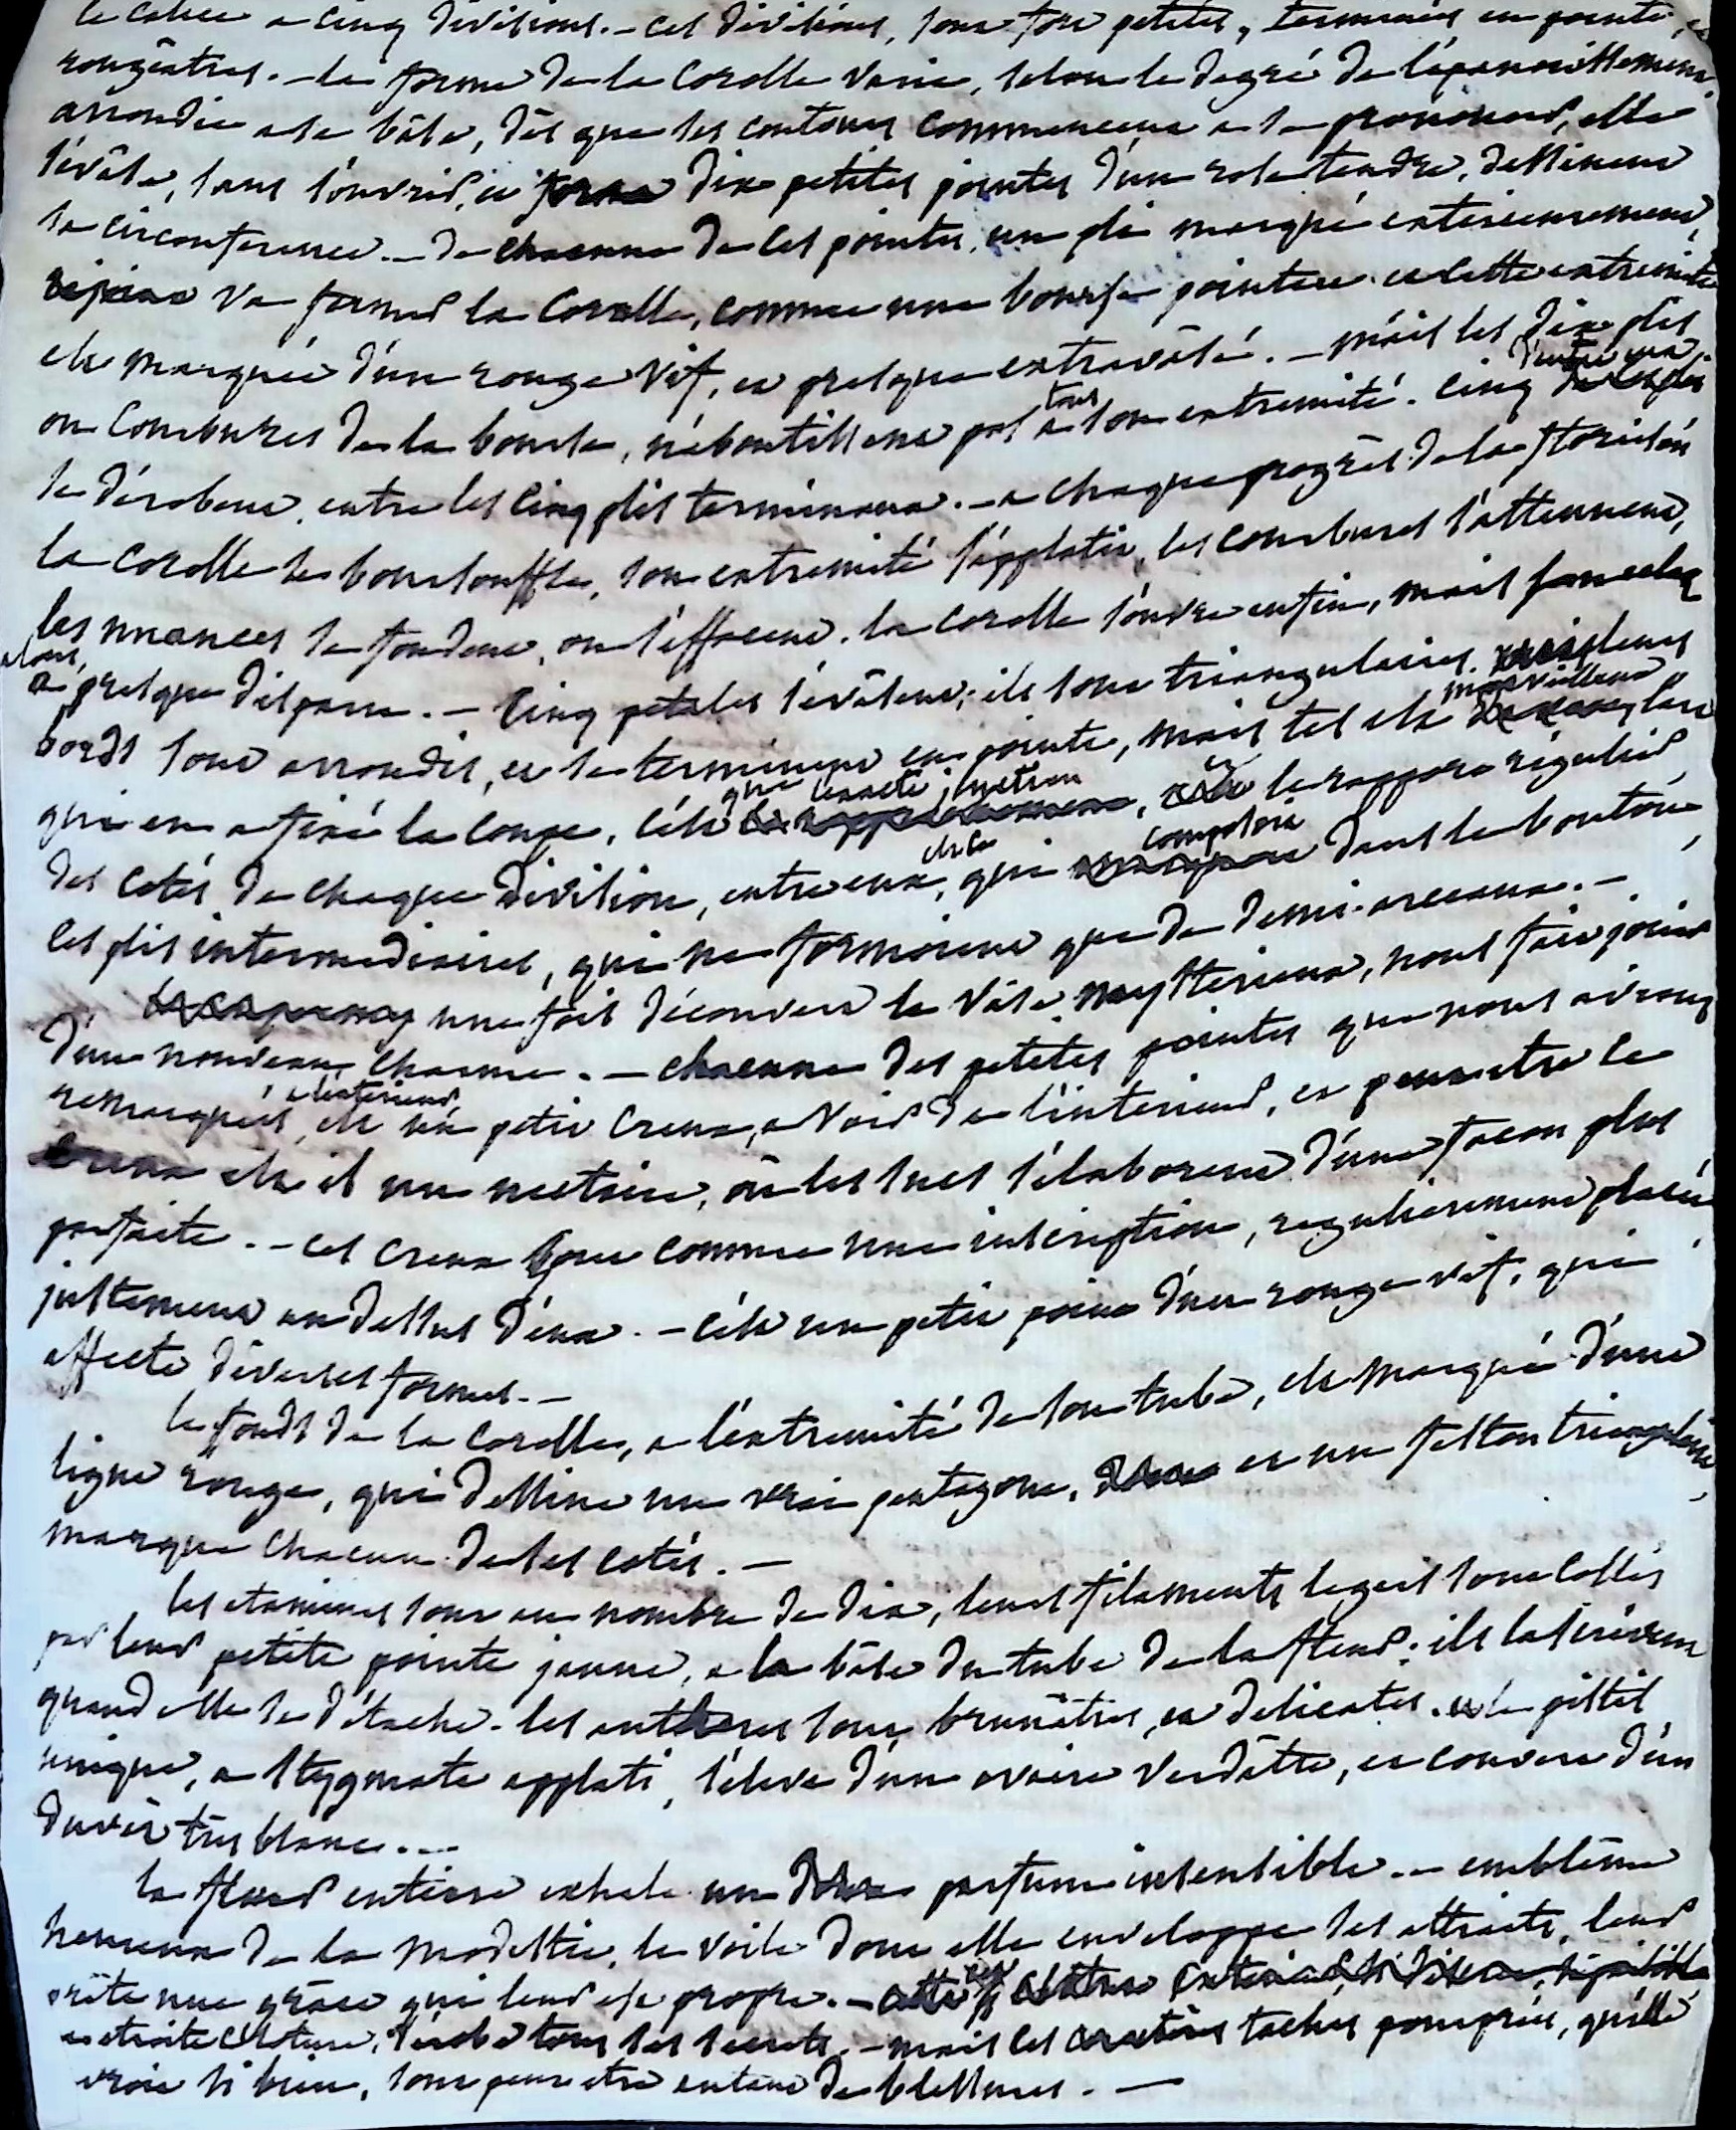 le calice a cinq divisions. – ces divisions, sont fort petites, terminées en pointe, et
rougeâtres. – la forme de la corolle varie, selon le degré de l'épanouissement.
arrondie a sa bâse, dès que ses contours commencent a se prononcer, elle
s'évâse, sans s'ouvrir, et dix petites pointes d'un rose tendre, dessinent
sa circonference. – de chacune de ces pointes, un pli marqué exterieurement,
va former la corolle, comme une bourse pointue. et cette extremité
est marquée d'un rouge vif, et presque extravasé. – mais les dix plis
ou courbures de la bourse, n'aboutissent pas tous a son extremité. cinq d'entre eux
se dérobent, entre les cinq plis terminaux. – a chaque progrès de la floraison
la corolle se boursouffle, son extremité s'applatit, ses courbures s'attenuent,
les nuances se fondent, ou s'effacent. la corolle s'ouvre enfin, mais son eclat
alors, a presque disparu. – Cinq petales s'évâsent; ils sont triangulaires. leurs
bords sont arrondis, et se terminent en pointe, mais tel est merveilleux l'art
qui en a fixé la coupe, c'est que l'exacte jonction, et le rapport régulier
des cotés de chaque division, entre eux, est ce qui composoit dans le bouton
ces plis intermediaires, qui ne formoient que de demi-arceaux. –
une fois découvert le vâse mysterieux, nous fait jouir
d'un nouveau charme. – chacune des petites pointes que nous avions
remarquées, a l'exterieur est un petit creux, a voir de l'interieur, et peut etre ce
creux est il un nectaire, où les sucs s'élaborent d'une façon plus
parfaite. – ces creux sont comme une inscription, regulierement placée
justement au dessus d'eux. – c'est un petit point d'un rouge vif, qui
affecte diverses formes. –
le fonds de la corolle, a l'extremité de son tube, est marqué d'une
ligne rouge, qui dessine un vrai pentagone, et un feston triangulaire,
marque chacun de ses cotés. –
les etamines sont au nombre de dix, leurs filaments legers sont collés
par leur petite pointe jaune, a la bâse du tube de la fleur; ils la suivent
quand elle se détache. les antheres sont brunâtres, et delicates. et le pistil
unique, a stygmate applati, s'éleve d'un ovaire verdâtre, et couvert d'un
duvet très blanc. –
la fleur entiere exhale un parfum insensible. – emblême
heureux de la modestie, le voile dont elle enveloppe ses attraits, leur
prête une grâce qui leur est propre. –
etroite clôture, dérobe tous ses secrets. – mais ces taches pourprées, qu'elle
si bien, sont peut etre autant de blessures. –